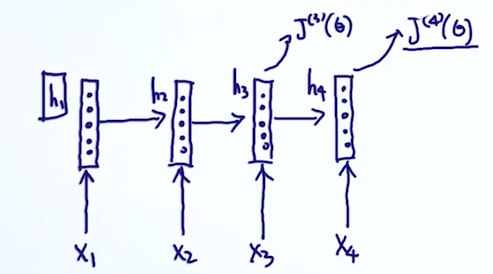 J⁽³⁾(θ) J⁽⁴⁾(θ)
h₁ h₂ h₃ h₄
X₁ X₂ X₃ X₄